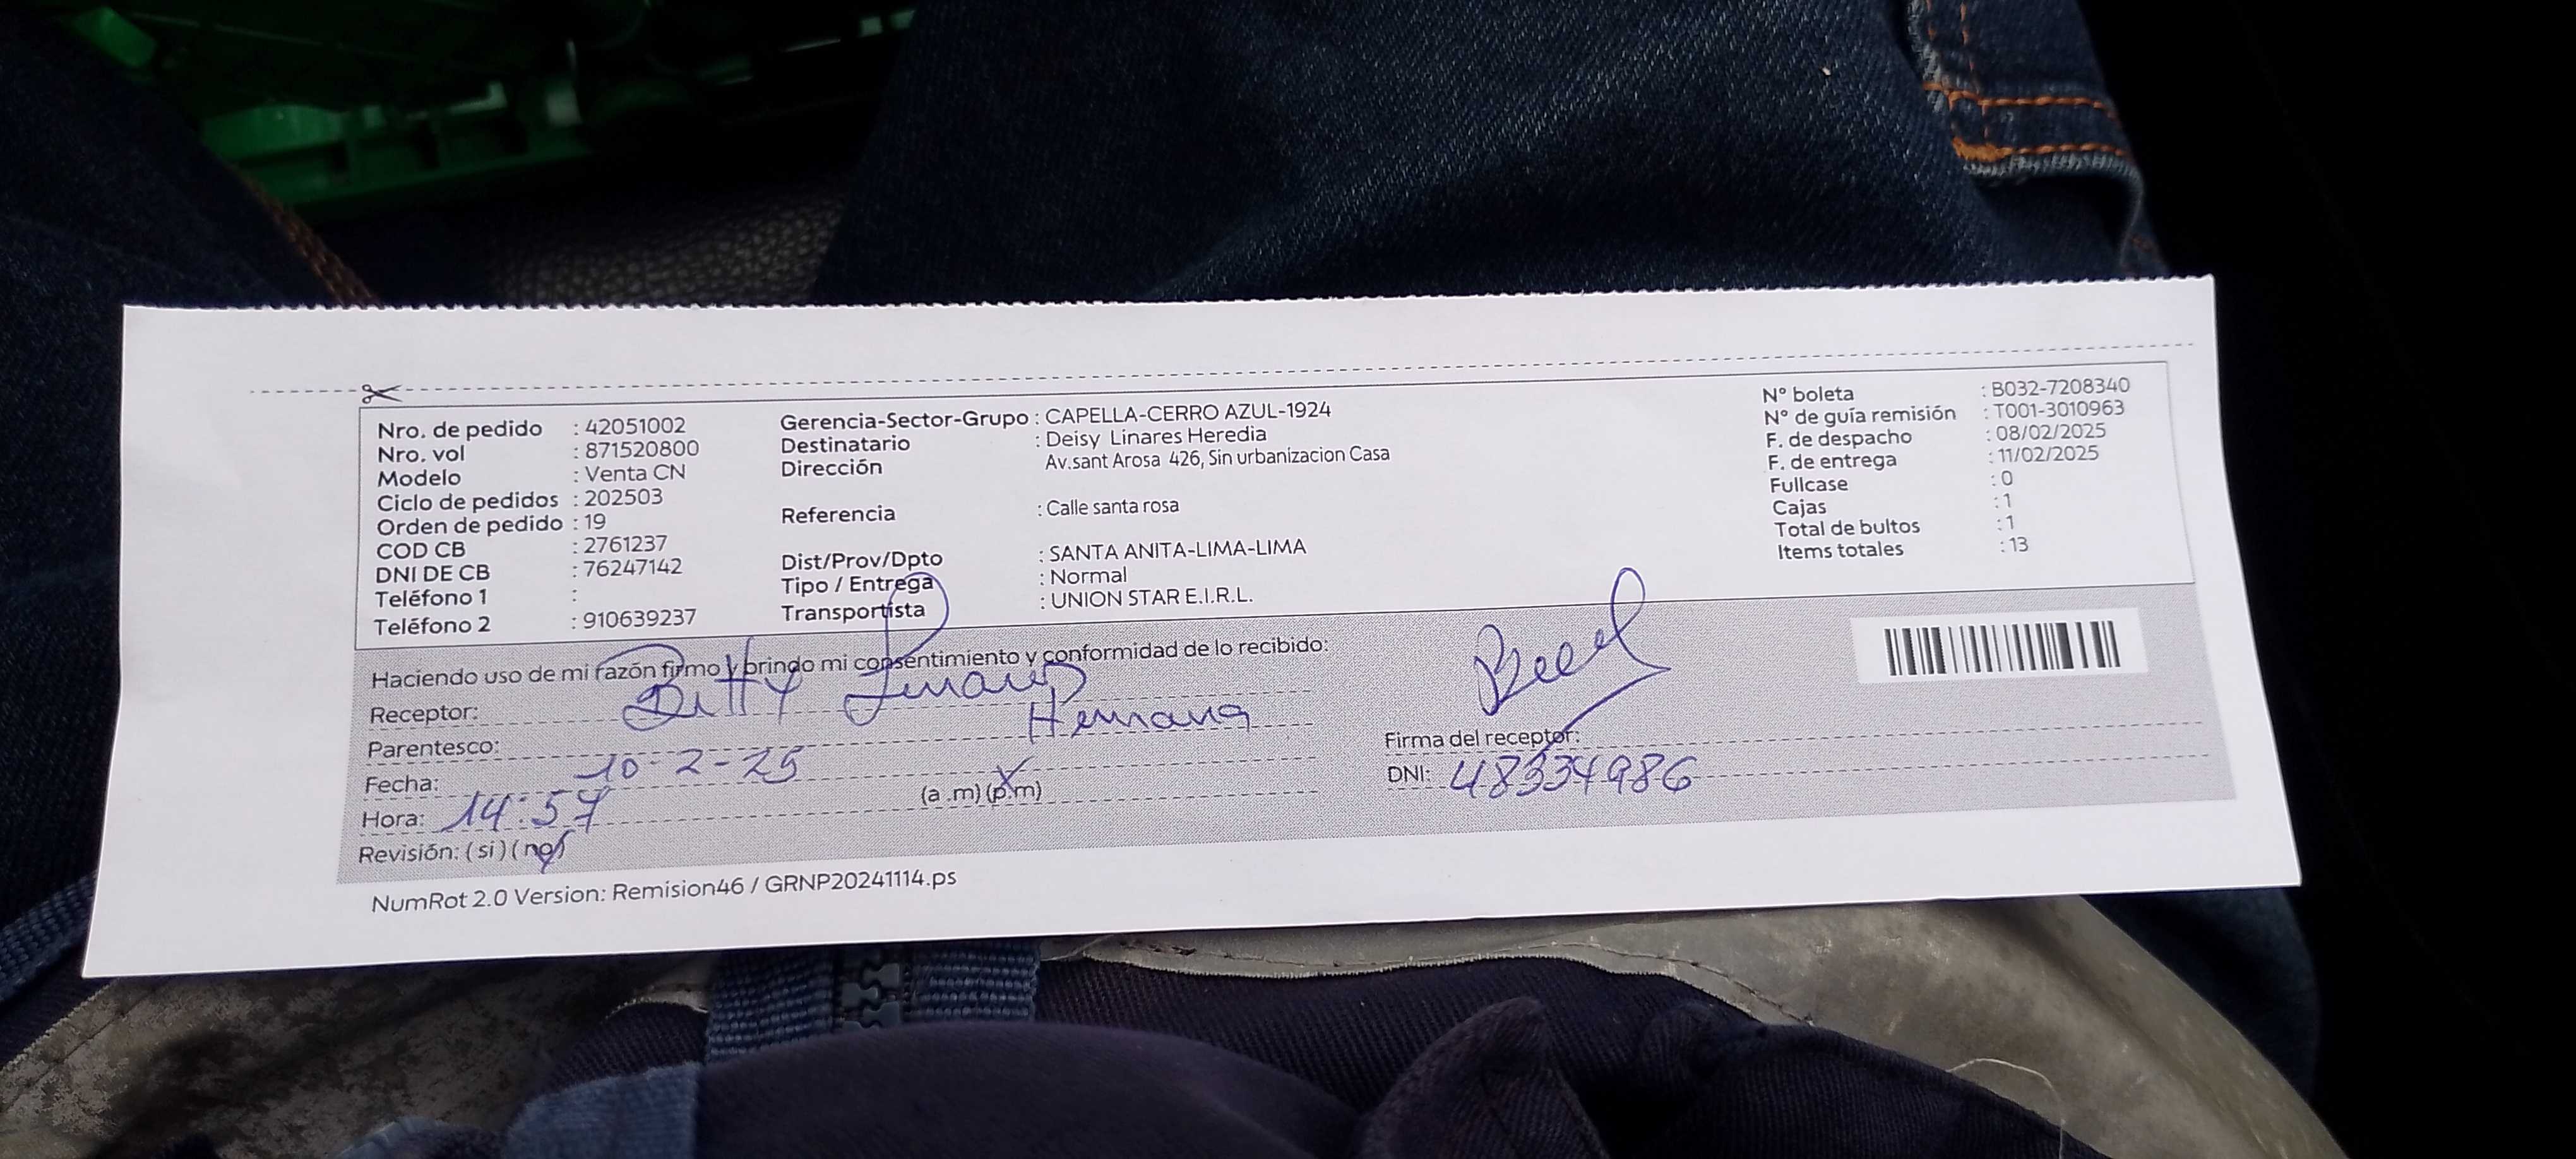 Nro. de pedido : 42051002
Nro. vol : 871520800
Modelo : Venta CN
Ciclo de pedidos : 202503
Orden de pedido : 19
COD CB : 2761237
DNI DE CB : 76247142
Teléfono 1 :
Teléfono 2 : 910639237
Gerencia-Sector-Grupo : CAPELLA-CERRO AZUL-1924
Destinatario : Deisy Linares Heredia
Dirección Av.sant Arosa 426, Sin urbanizacion Casa
Referencia : Calle santa rosa
Dist/Prov/Dpto : SANTA ANITA-LIMA-LIMA
Tipo / Entrega : Normal
Transportista : UNION STAR E.I.R.L.
N° boleta : B032-7208340
N° de guía remisión : T001-3010963
F. de despacho : 08/02/2025
F. de entrega : 11/02/2025
Fullcase : 0
Cajas : 1
Total de bultos : 1
Items totales : 13
Haciendo uso de mi razón firmo y brindo mi consentimiento y conformidad de lo recibido:
Receptor: Bitty Linares
Parentesco: Hermana
Fecha: 10-2-25
Hora: 14:57 (a .m) (p.m)
Revisión: ( si ) ( no )
Firma del receptor:
DNI: 48334986
NumRot 2.0 Version: Remision46 / GRNP20241114.ps